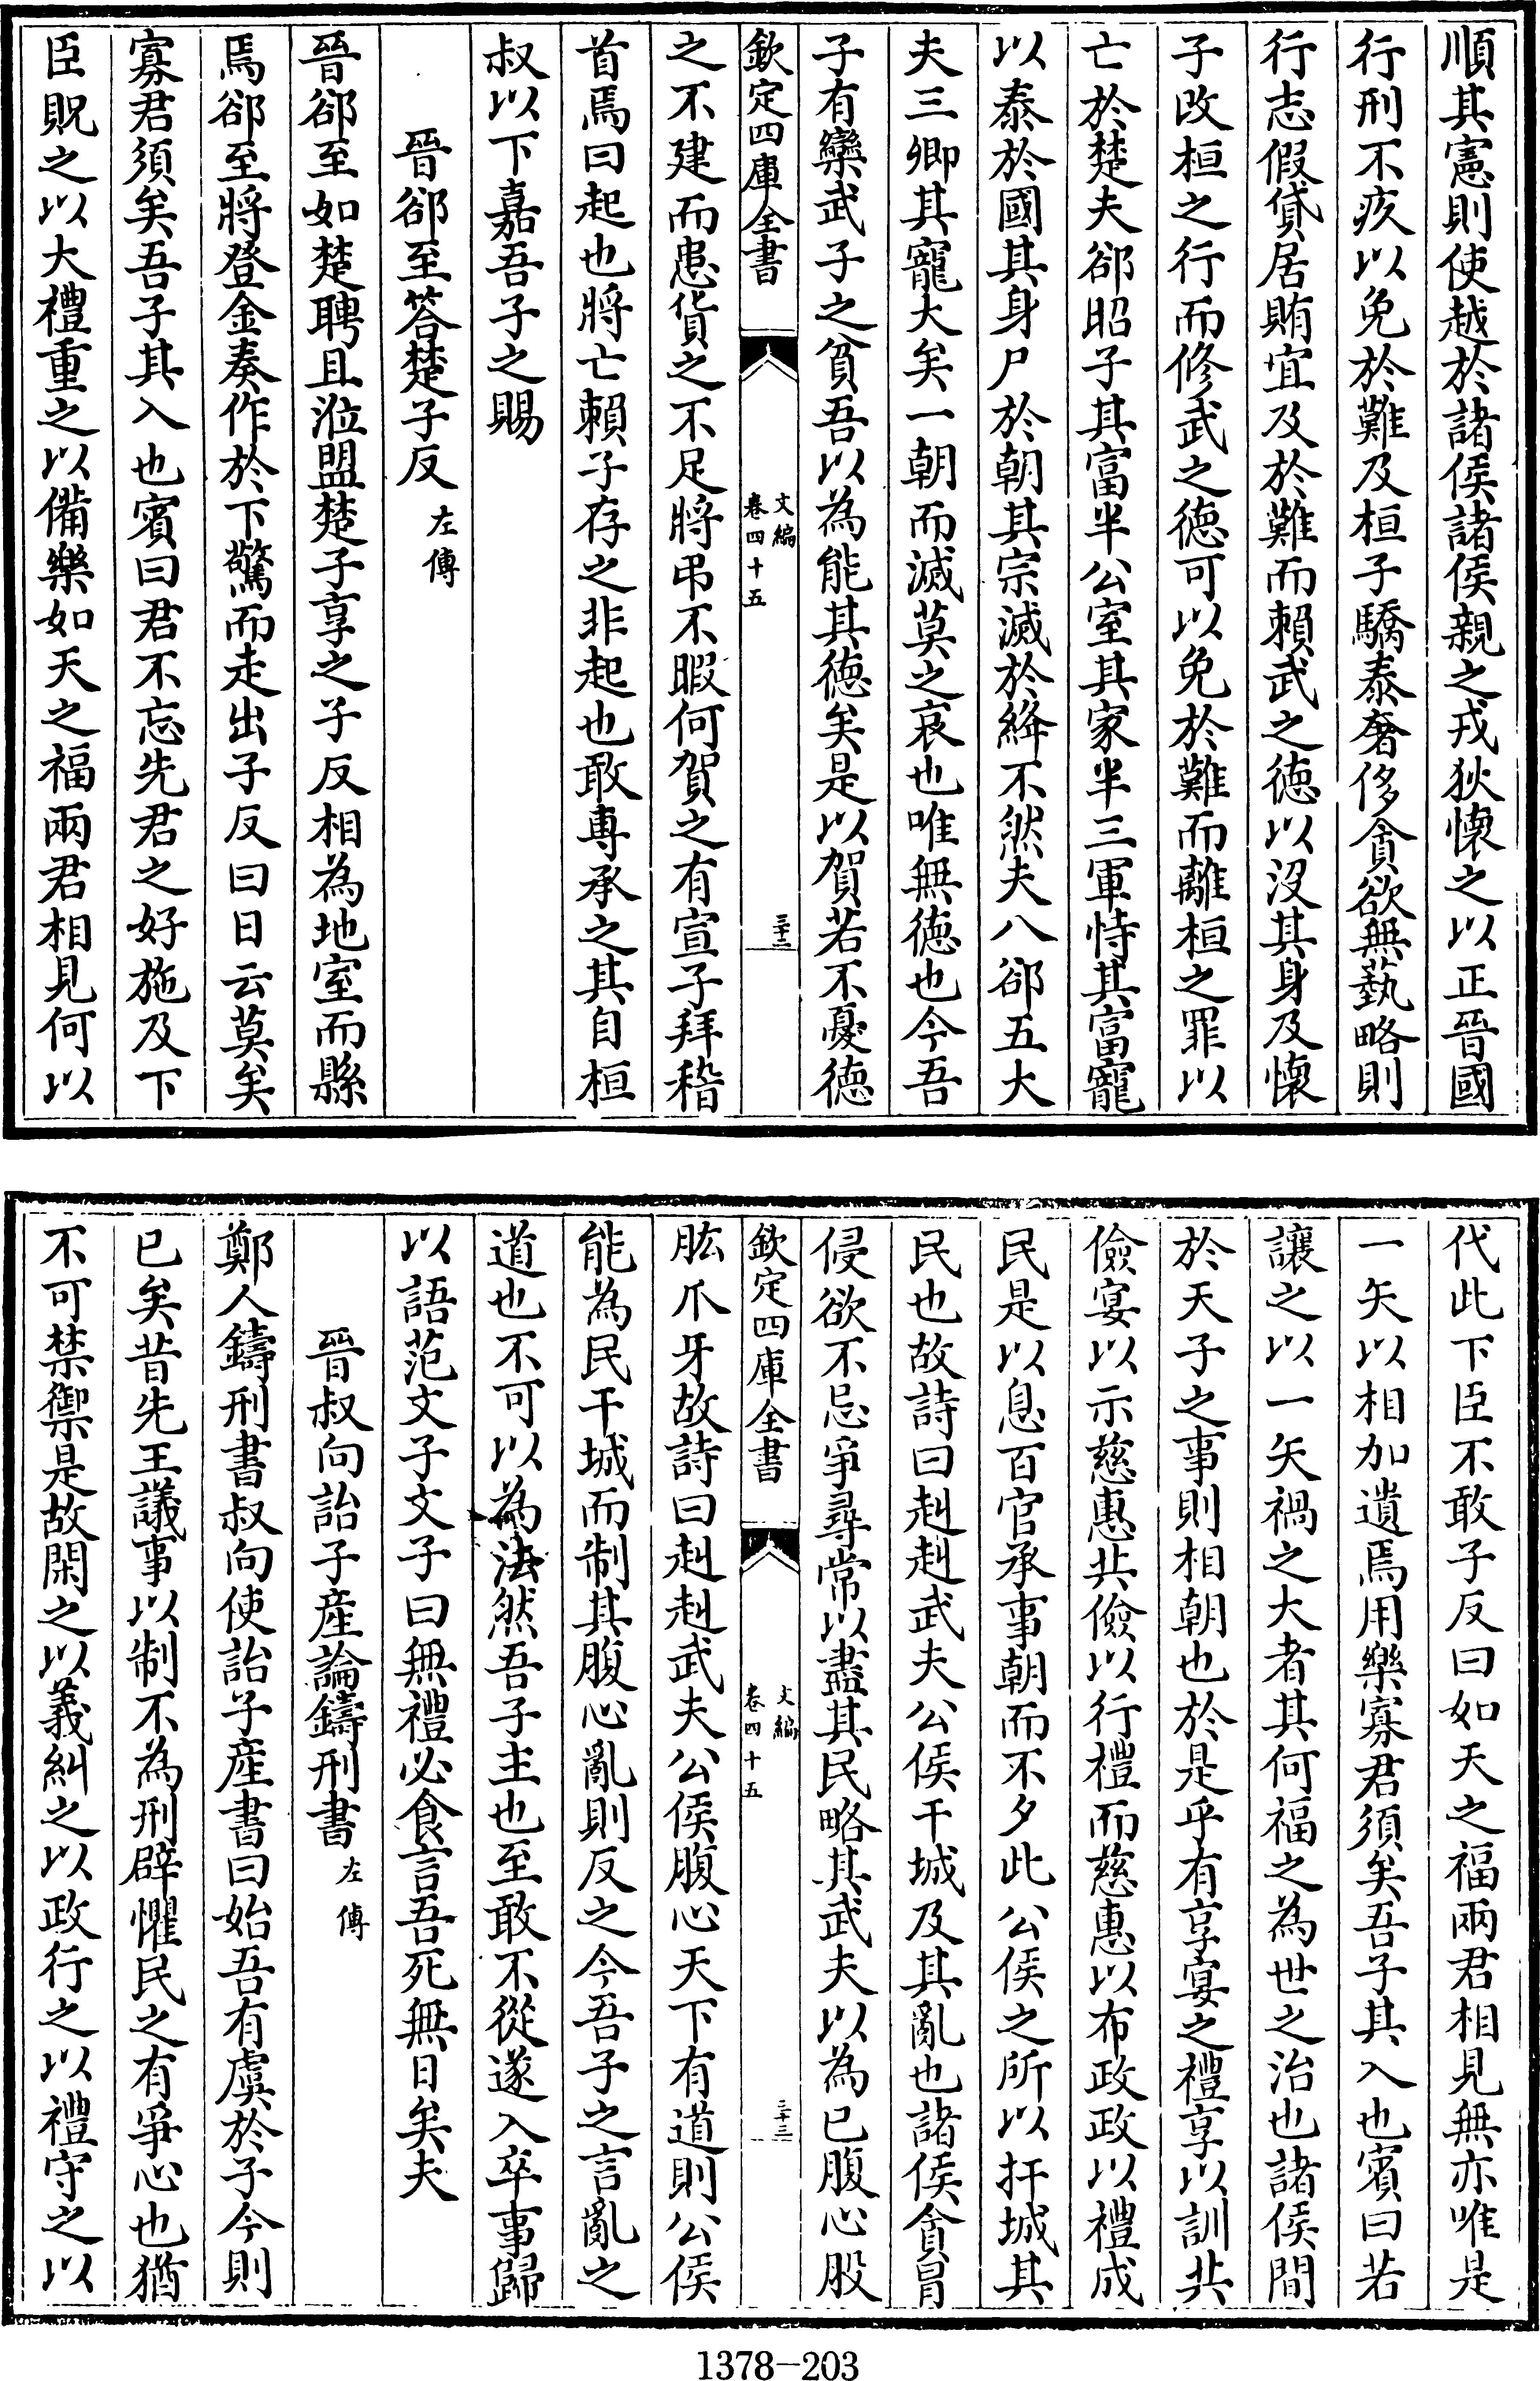 順其憲則使越於諸侯諸侯親之戎狄懷之以正晉國
行刑不疚以免於難及桓子驕泰奢侈貪欲無藝略則
行志假貸居賄宜及於難而賴武之德以沒其身及懷
子改桓之行而修武之德可以免於難而離桓之罪以
亡於楚夫郤昭子其富半公室其家半三軍恃其富寵
以泰於國其身尸於朝其宗滅於絳不然夫八郤五大
夫三卿其寵大矣一朝而滅莫之哀也唯無德也今吾
子有欒武子之貧吾以為能其德矣是以賀若不憂德
欽定四庫全書
文編
卷四十五
三十二
之不建而患貨之不足將弔不暇何賀之有宣子拜稽
首焉曰起也將亡賴子存之非起也敢專承之其自桓
叔以下嘉吾子之賜
晉郤至答楚子反左傳
晉郤至如楚聘且涖盟楚子享之子反相為地室而縣
焉郤至將登金奏作於下驚而走出子反曰日云莫矣
寡君須矣吾子其入也賓曰君不忘先君之好施及下
臣貺之以大禮重之以備樂如天之福兩君相見何以
代此下臣不敢子反曰如天之福兩君相見無亦唯是
一矢以相加遺焉用樂寡君須矣吾子其入也賓曰若
讓之以一矢禍之大者其何福之為世之治也諸侯間
於天子之事則相朝也於是乎有享宴之禮享以訓共
儉宴以示慈惠共儉以行禮而慈惠以布政政以禮成
民是以息百官承事朝而不夕此公侯之所以扞城其
民也故詩曰赳赳武夫公侯干城及其亂也諸侯貪冒
侵欲不忌爭尋常以盡其民略其武夫以為已腹心股
欽定四庫全書
文編
卷四十五
三十三
肱爪牙故詩曰赳赳武夫公侯腹心天下有道則公侯
能為民干城而制其腹心亂則反之今吾子之言亂之
道也不可以為法然吾子主也至敢不從遂入卒事歸
以語范文子文子曰無禮必食言吾死無日矣夫
晉叔向詒子產論鑄刑書左傳
鄭人鑄刑書叔向使詒子產書曰始吾有虞於子今則
已矣昔先王議事以制不為刑辟懼民之有爭心也猶
不可禁禦是故閑之以義糾之以政行之以禮守之以
1378-203